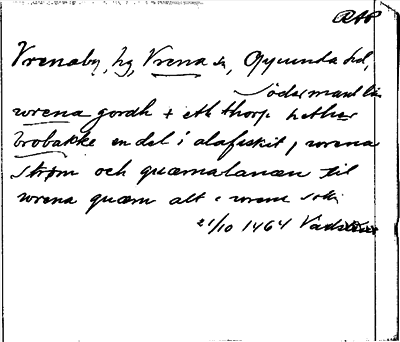 RAP
Vrenaby, hg, Vrena sn, Oppunda hd,
Södermanl. län
wrena gordh + eth thorp hether
brobakke en del i alafiskit, wrena
strøm och quærnalanæn til
wrena quærn alt i wrena sokn
21/10 1464 Vadstena